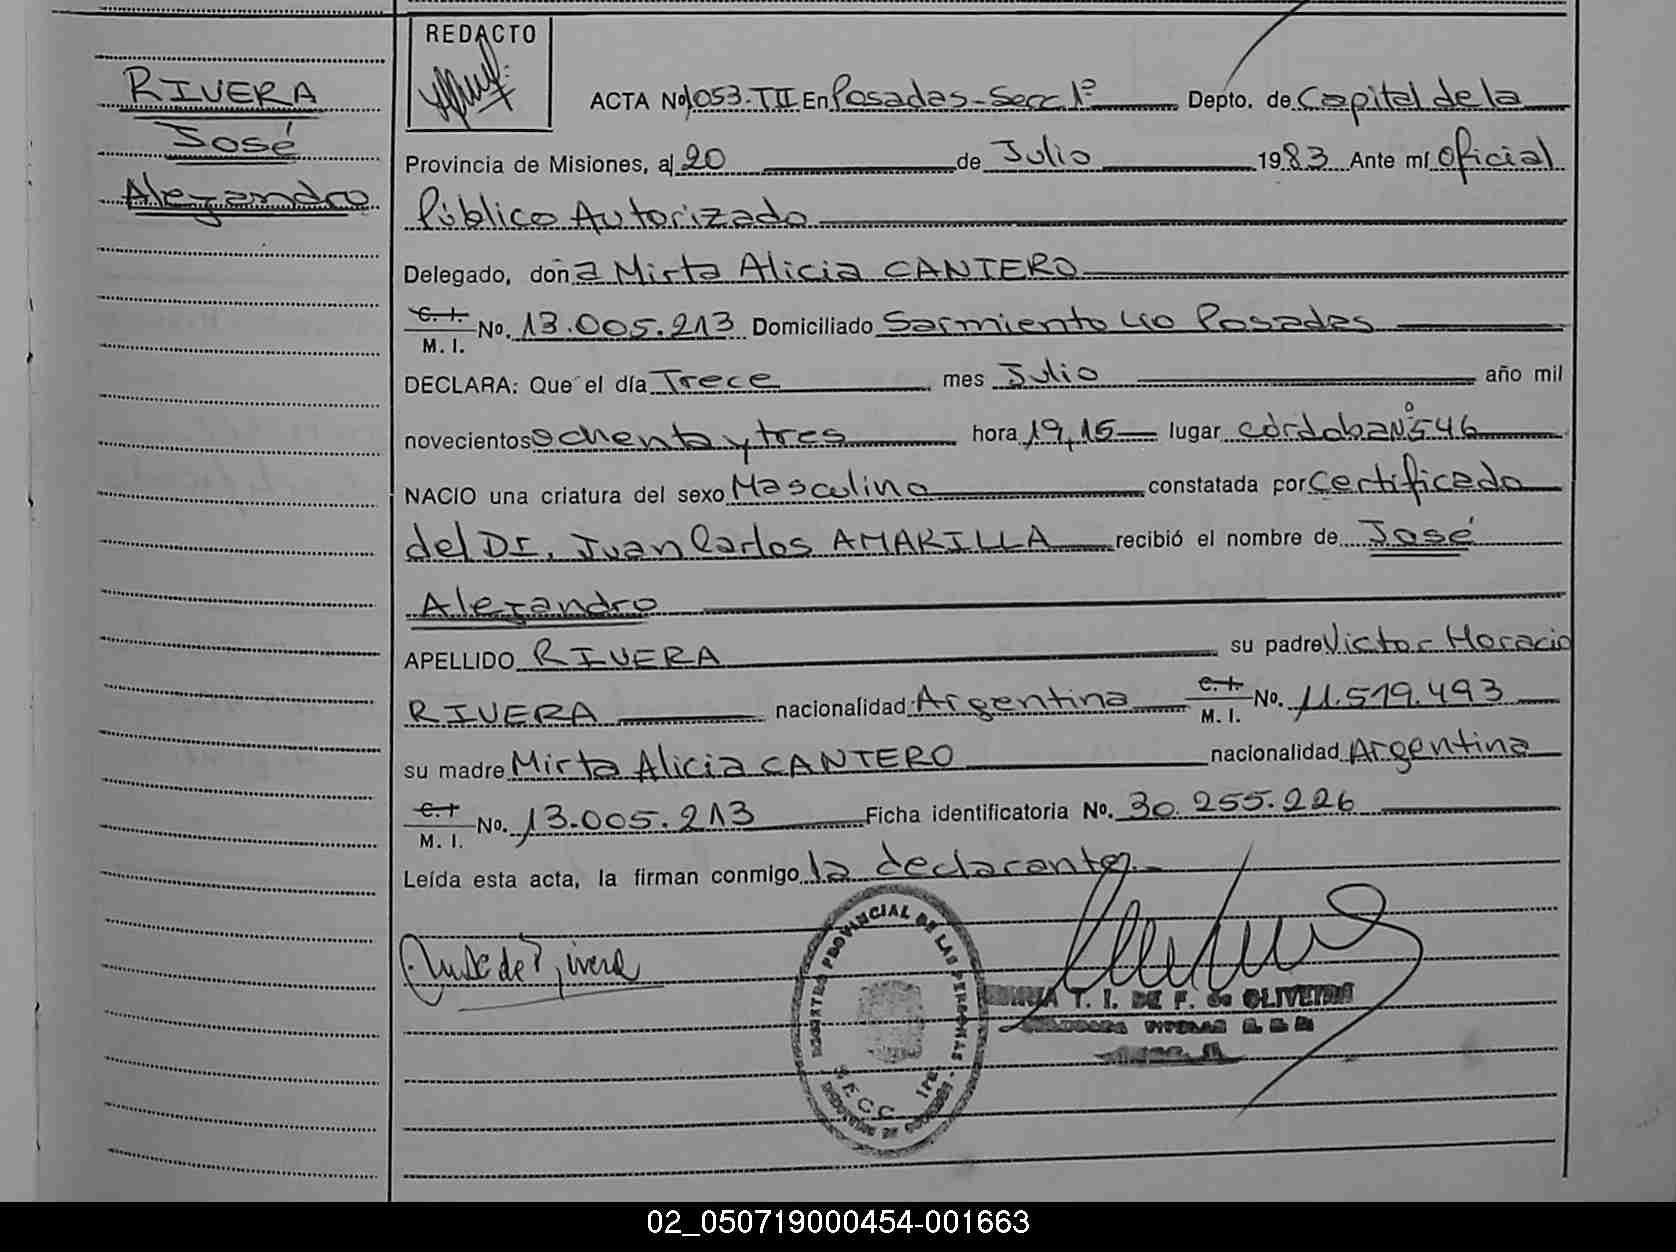 RIVERA
José
Alejandro
REDACTO
ACTA No 1,053-TII En Posadas-Secc.1ª Depto. de Capital de la
Provincia de Misiones, al 20 de Julio 1983 Ante mí Oficial
Público Autorizado
Delegado, doña Mirta Alicia CANTERO
C. I.
M. I. No. 13.005.213 Domiciliado Sarmiento 40 Posadas
DECLARA: Que el día Trece mes Julio año mil
novecientos ochenta y tres hora 19,15 lugar córdoba Nº 546
NACIO una criatura del sexo Masculino constatada por certificado
del Dr. Juan Carlos AMARILLA recibió el nombre de José
Alejandro
APELLIDO RIVERA su padre Victor Horacio
RIVERA nacionalidad Argentina C. I. M. I. No. 11.519.493
su madre Mirta Alicia CANTERO nacionalidad Argentina
C. I.
M. I. No. 13.005.213 Ficha identificatoria No. 30.255.226
Leída esta acta, la firman conmigo la declarante
de Rivera
REGISTRO PROVINCIAL DE LAS PERSONAS
SECC 1ra
T. I. DE F. de OLIVEIRA
02_050719000454-001663